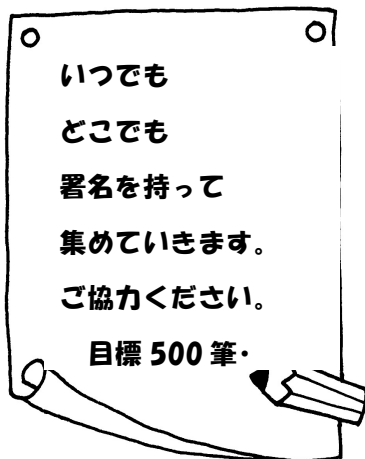 いつでも
どこでも
署名を持って
集めていきます。
ご協力ください。
目標 500 筆・